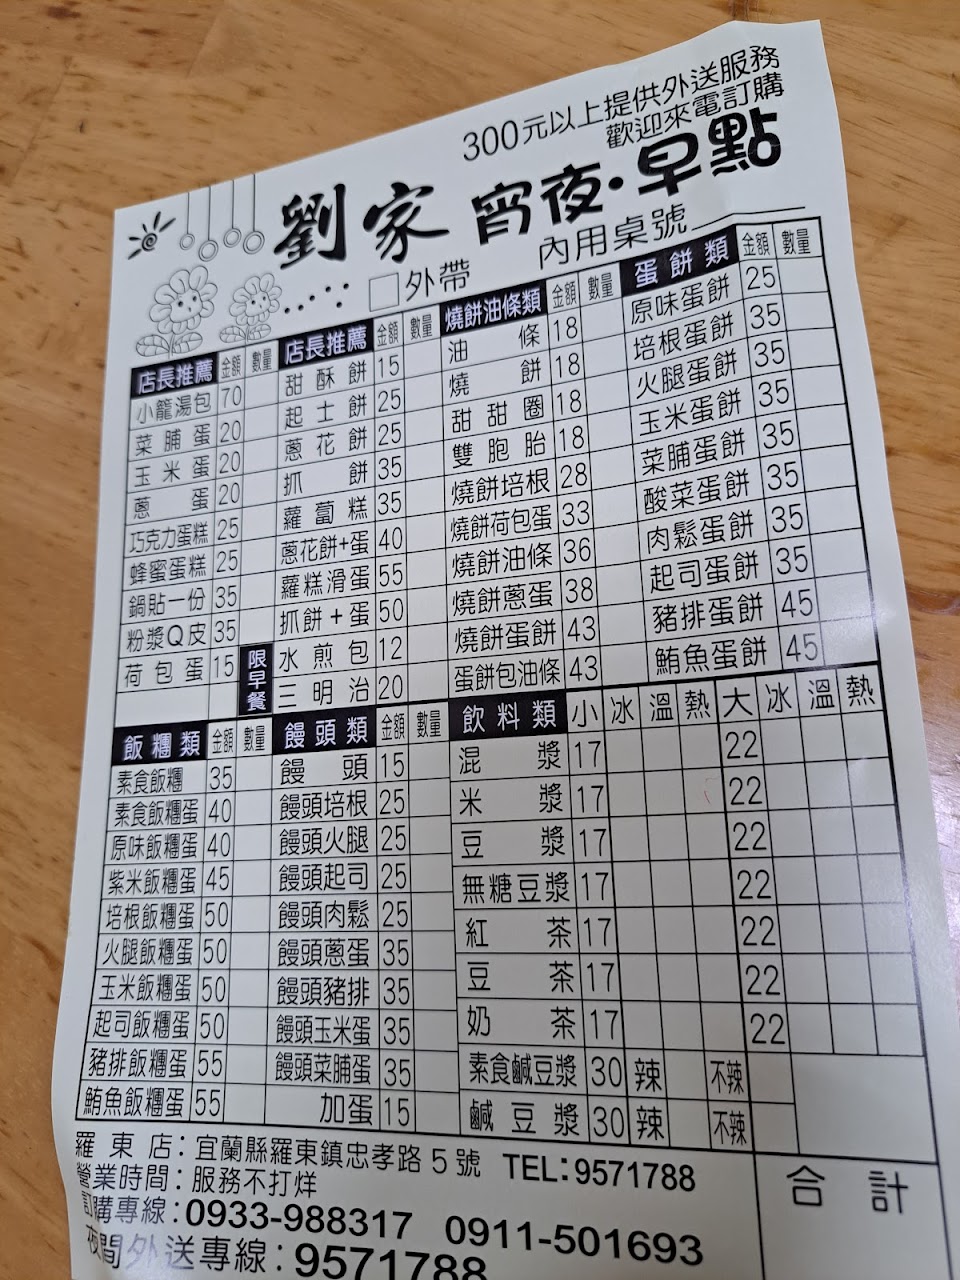 300元以上提供外送服務
歡迎來電訂購
劉家 宵夜·早點
□外帶 內用桌號
店長推薦 金額 數量
小籠湯包 70
菜脯蛋 20
玉米蛋 20
蔥蛋 20
巧克力蛋糕 25
蜂蜜蛋糕 25
鍋貼一份 35
粉漿Q皮 35
荷包蛋 15
店長推薦 金額 數量
甜酥餅 15
起士餅 25
蔥花餅 25
抓餅 35
蘿蔔糕 35
蔥花餅+蛋 40
蘿糕滑蛋 55
抓餅+蛋 50
限早餐
水煎包 12
三明治 20
燒餅油條類 金額 數量
油條 18
燒餅 18
甜甜圈 18
雙胞胎 18
燒餅培根 28
燒餅荷包蛋 33
燒餅油條 36
燒餅蔥蛋 38
燒餅蛋餅 43
蛋餅包油條 43
蛋餅類 金額 數量
原味蛋餅 25
培根蛋餅 35
火腿蛋餅 35
玉米蛋餅 35
菜脯蛋餅 35
酸菜蛋餅 35
肉鬆蛋餅 35
起司蛋餅 35
豬排蛋餅 45
鮪魚蛋餅 45
飯糰類 金額 數量
素食飯糰 35
素食飯糰蛋 40
原味飯糰蛋 40
紫米飯糰蛋 45
培根飯糰蛋 50
火腿飯糰蛋 50
玉米飯糰蛋 50
起司飯糰蛋 50
豬排飯糰蛋 55
鮪魚飯糰蛋 55
饅頭類 金額 數量
饅頭 15
饅頭培根 25
饅頭火腿 25
饅頭起司 25
饅頭肉鬆 25
饅頭蔥蛋 35
饅頭豬排 35
饅頭玉米蛋 35
饅頭菜脯蛋 35
加蛋 15
飲料類 小 冰 溫 熱 大 冰 溫 熱
混漿 17 22
米漿 17 22
豆漿 17 22
無糖豆漿 17 22
紅茶 17 22
豆茶 17 22
奶茶 17 22
素食鹹豆漿 30 辣 不辣
鹹豆漿 30 辣 不辣
合計
羅東店：宜蘭縣羅東鎮忠孝路5號 TEL:9571788
營業時間：服務不打烊
訂購專線：0933-988317 0911-501693
夜間外送專線：9571788